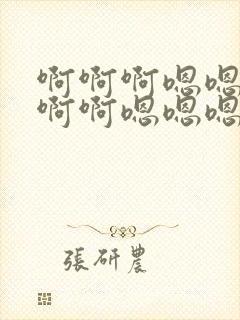 啊啊啊嗯嗯
啊啊嗯嗯嗯
張研農